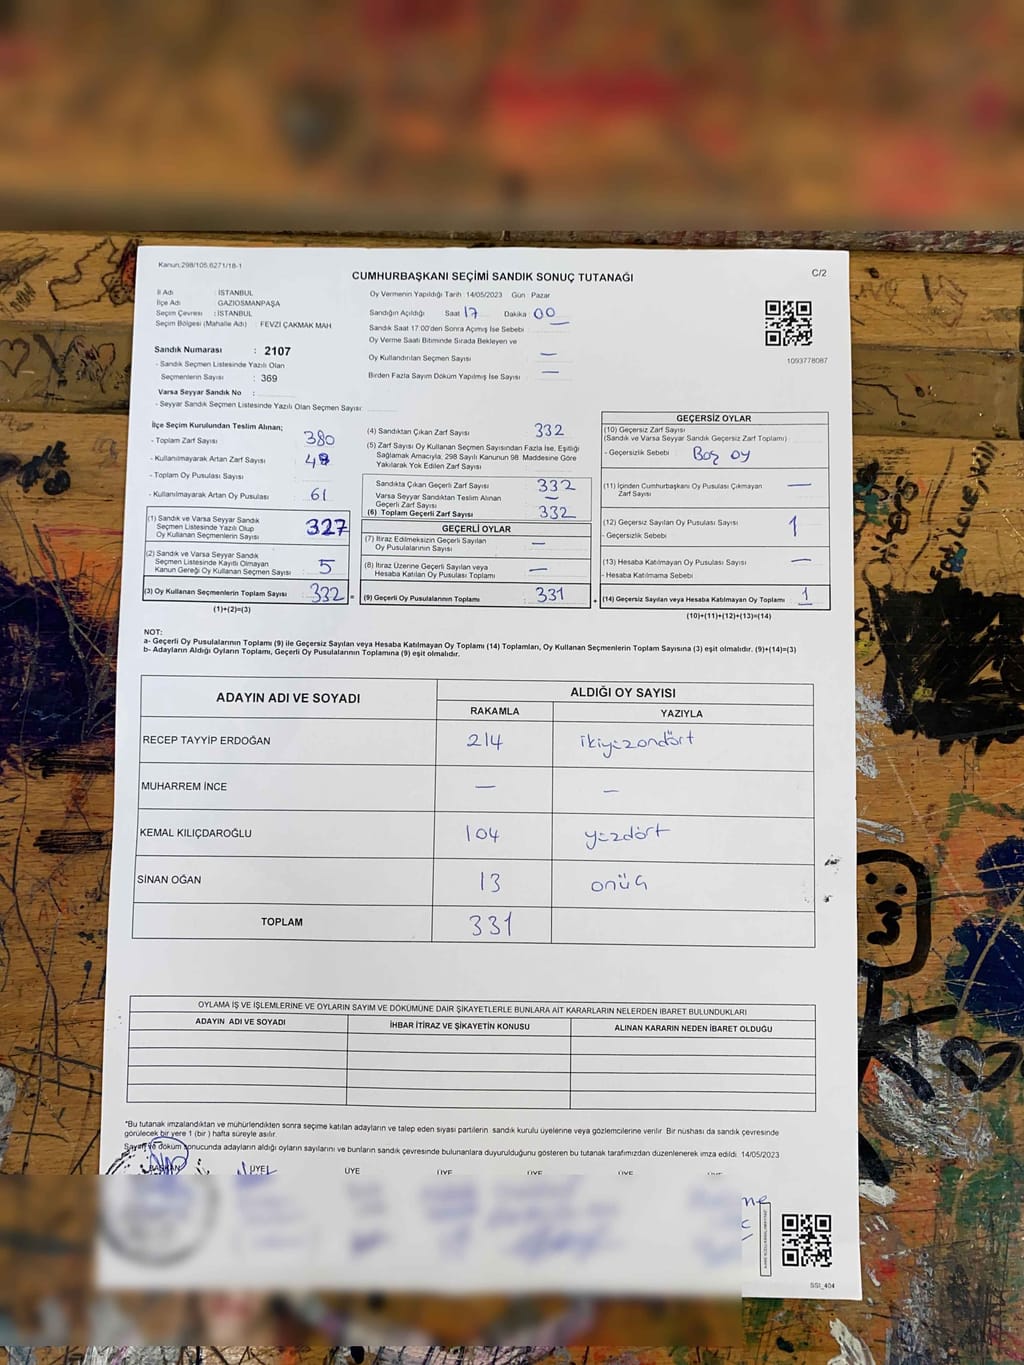 Kanun;298/105.6271/18-1
CUMHURBAŞKANI SEÇİMİ SANDIK SONUÇ TUTANAĞI
C/2
İl Adı : İSTANBUL
İlçe Adı GAZİOSMANPAŞA
Seçim Çevresi : İSTANBUL
Seçim Bölgesi (Mahalle Adı) : FEVZİ ÇAKMAK MAH
Oy Vermenin Yapıldığı Tarih :14/05/2023 Gün : Pazar
Sandığın Açıldığı Saat 17 Dakika 00
Sandık Saat 17:00'den Sonra Açımış İse Sebebi
Oy Verme Saati Bitiminde Sırada Bekleyen ve
Oy Kullandırılan Seçmen Sayısı —
Birden Fazla Sayım Döküm Yapılmış İse Sayısı —
1093778087
Sandık Numarası : 2107
- Sandık Seçmen Listesinde Yazılı Olan
Seçmenlerin Sayısı : 369
Varsa Seyyar Sandık No :
- Seyyar Sandık Seçmen Listesinde Yazılı Olan Seçmen Sayısı:
İlçe Seçim Kurulundan Teslim Alınan;
- Toplam Zarf Sayısı 380
- Kullanılmayarak Artan Zarf Sayısı 48
- Toplam Oy Pusulası Sayısı
- Kullanılmayarak Artan Oy Pusulası 61
(1) Sandık ve Varsa Seyyar Sandık
Seçmen Listesinde Yazılı Olup
Oy Kullanan Seçmenlerin Sayısı 327
(2) Sandık ve Varsa Seyyar Sandık
Seçmen Listesinde Kayıtlı Olmayan
Kanun Gereği Oy Kullanan Seçmen Sayısı 5
(3) Oy Kullanan Seçmenlerin Toplam Sayısı 332 =
(1)+(2)=(3)
(4) Sandıktan Çıkan Zarf Sayısı 332
(5) Zarf Sayısı Oy Kullanan Seçmen Sayısından Fazla İse, Eşitliği
Sağlamak Amacıyla, 298 Sayılı Kanunun 98. Maddesine Göre
Yakılarak Yok Edilen Zarf Sayısı
Sandıkta Çıkan Geçerli Zarf Sayısı 332
Varsa Seyyar Sandıktan Teslim Alınan
Geçerli Zarf Sayısı —
(6) Toplam Geçerli Zarf Sayısı 332
GEÇERLİ OYLAR
(7) İtiraz Edilmeksizin Geçerli Sayılan
Oy Pusulalarının Sayısı —
(8) İtiraz Üzerine Geçerli Sayılan veya
Hesaba Katılan Oy Pusulası Toplamı —
(9) Geçerli Oy Pusulalarının Toplamı 331
GEÇERSİZ OYLAR
(10) Geçersiz Zarf Sayısı
(Sandık ve Varsa Seyyar Sandık Geçersiz Zarf Toplamı)
- Geçersizlik Sebebi Boş oy
(11) İçinden Cumhurbaşkanı Oy Pusulası Çıkmayan
Zarf Sayısı —
(12) Geçersiz Sayılan Oy Pusulası Sayısı 1
- Geçersizlik Sebebi
(13) Hesaba Katılmayan Oy Pusulası Sayısı —
- Hesaba Katılmama Sebebi
(14) Geçersiz Sayılan veya Hesaba Katılmayan Oy Toplamı 1
(10)+(11)+(12)+(13)=(14)
NOT:
a- Geçerli Oy Pusulalarının Toplamı (9) ile Geçersiz Sayılan veya Hesaba Katılmayan Oy Toplamı (14) Toplamları, Oy Kullanan Seçmenlerin Toplam Sayısına (3) eşit olmalıdır. (9)+(14)=(3)
b- Adayların Aldığı Oyların Toplamı, Geçerli Oy Pusulalarının Toplamına (9) eşit olmalıdır.
ADAYIN ADI VE SOYADI
ALDIĞI OY SAYISI
RAKAMLA YAZIYLA
RECEP TAYYİP ERDOĞAN 214 ikiyüzondört
MUHARREM İNCE — —
KEMAL KILIÇDAROĞLU 104 yüzdört
SİNAN OĞAN 13 onüç
TOPLAM 331
OYLAMA İŞ VE İŞLEMLERİNE VE OYLARIN SAYIM VE DÖKÜMÜNE DAİR ŞİKAYETLERLE BUNLARA AİT KARARLARIN NELERDEN İBARET BULUNDUKLARI
ADAYIN ADI VE SOYADI İHBAR İTİRAZ VE ŞİKAYETİN KONUSU ALINAN KARARIN NEDEN İBARET OLDUĞU
*Bu tutanak imzalandıktan ve mühürlendikten sonra seçime katılan adayların ve talep eden siyasi partilerin sandık kurulu üyelerine veya gözlemcilerine verilir. Bir nüshası da sandık çevresinde
görülecek bir yere 1 (bir) hafta süreyle asılır.
Sayım ve döküm sonucunda adayların aldığı oyların sayılarını ve bunların sandık çevresinde bulunanlara duyurulduğunu gösteren bu tutanak tarafımızdan düzenlenerek imza edildi. 14/05/2023
BAŞKAN ÜYE ÜYE ÜYE ÜYE ÜYE
SSİ_404